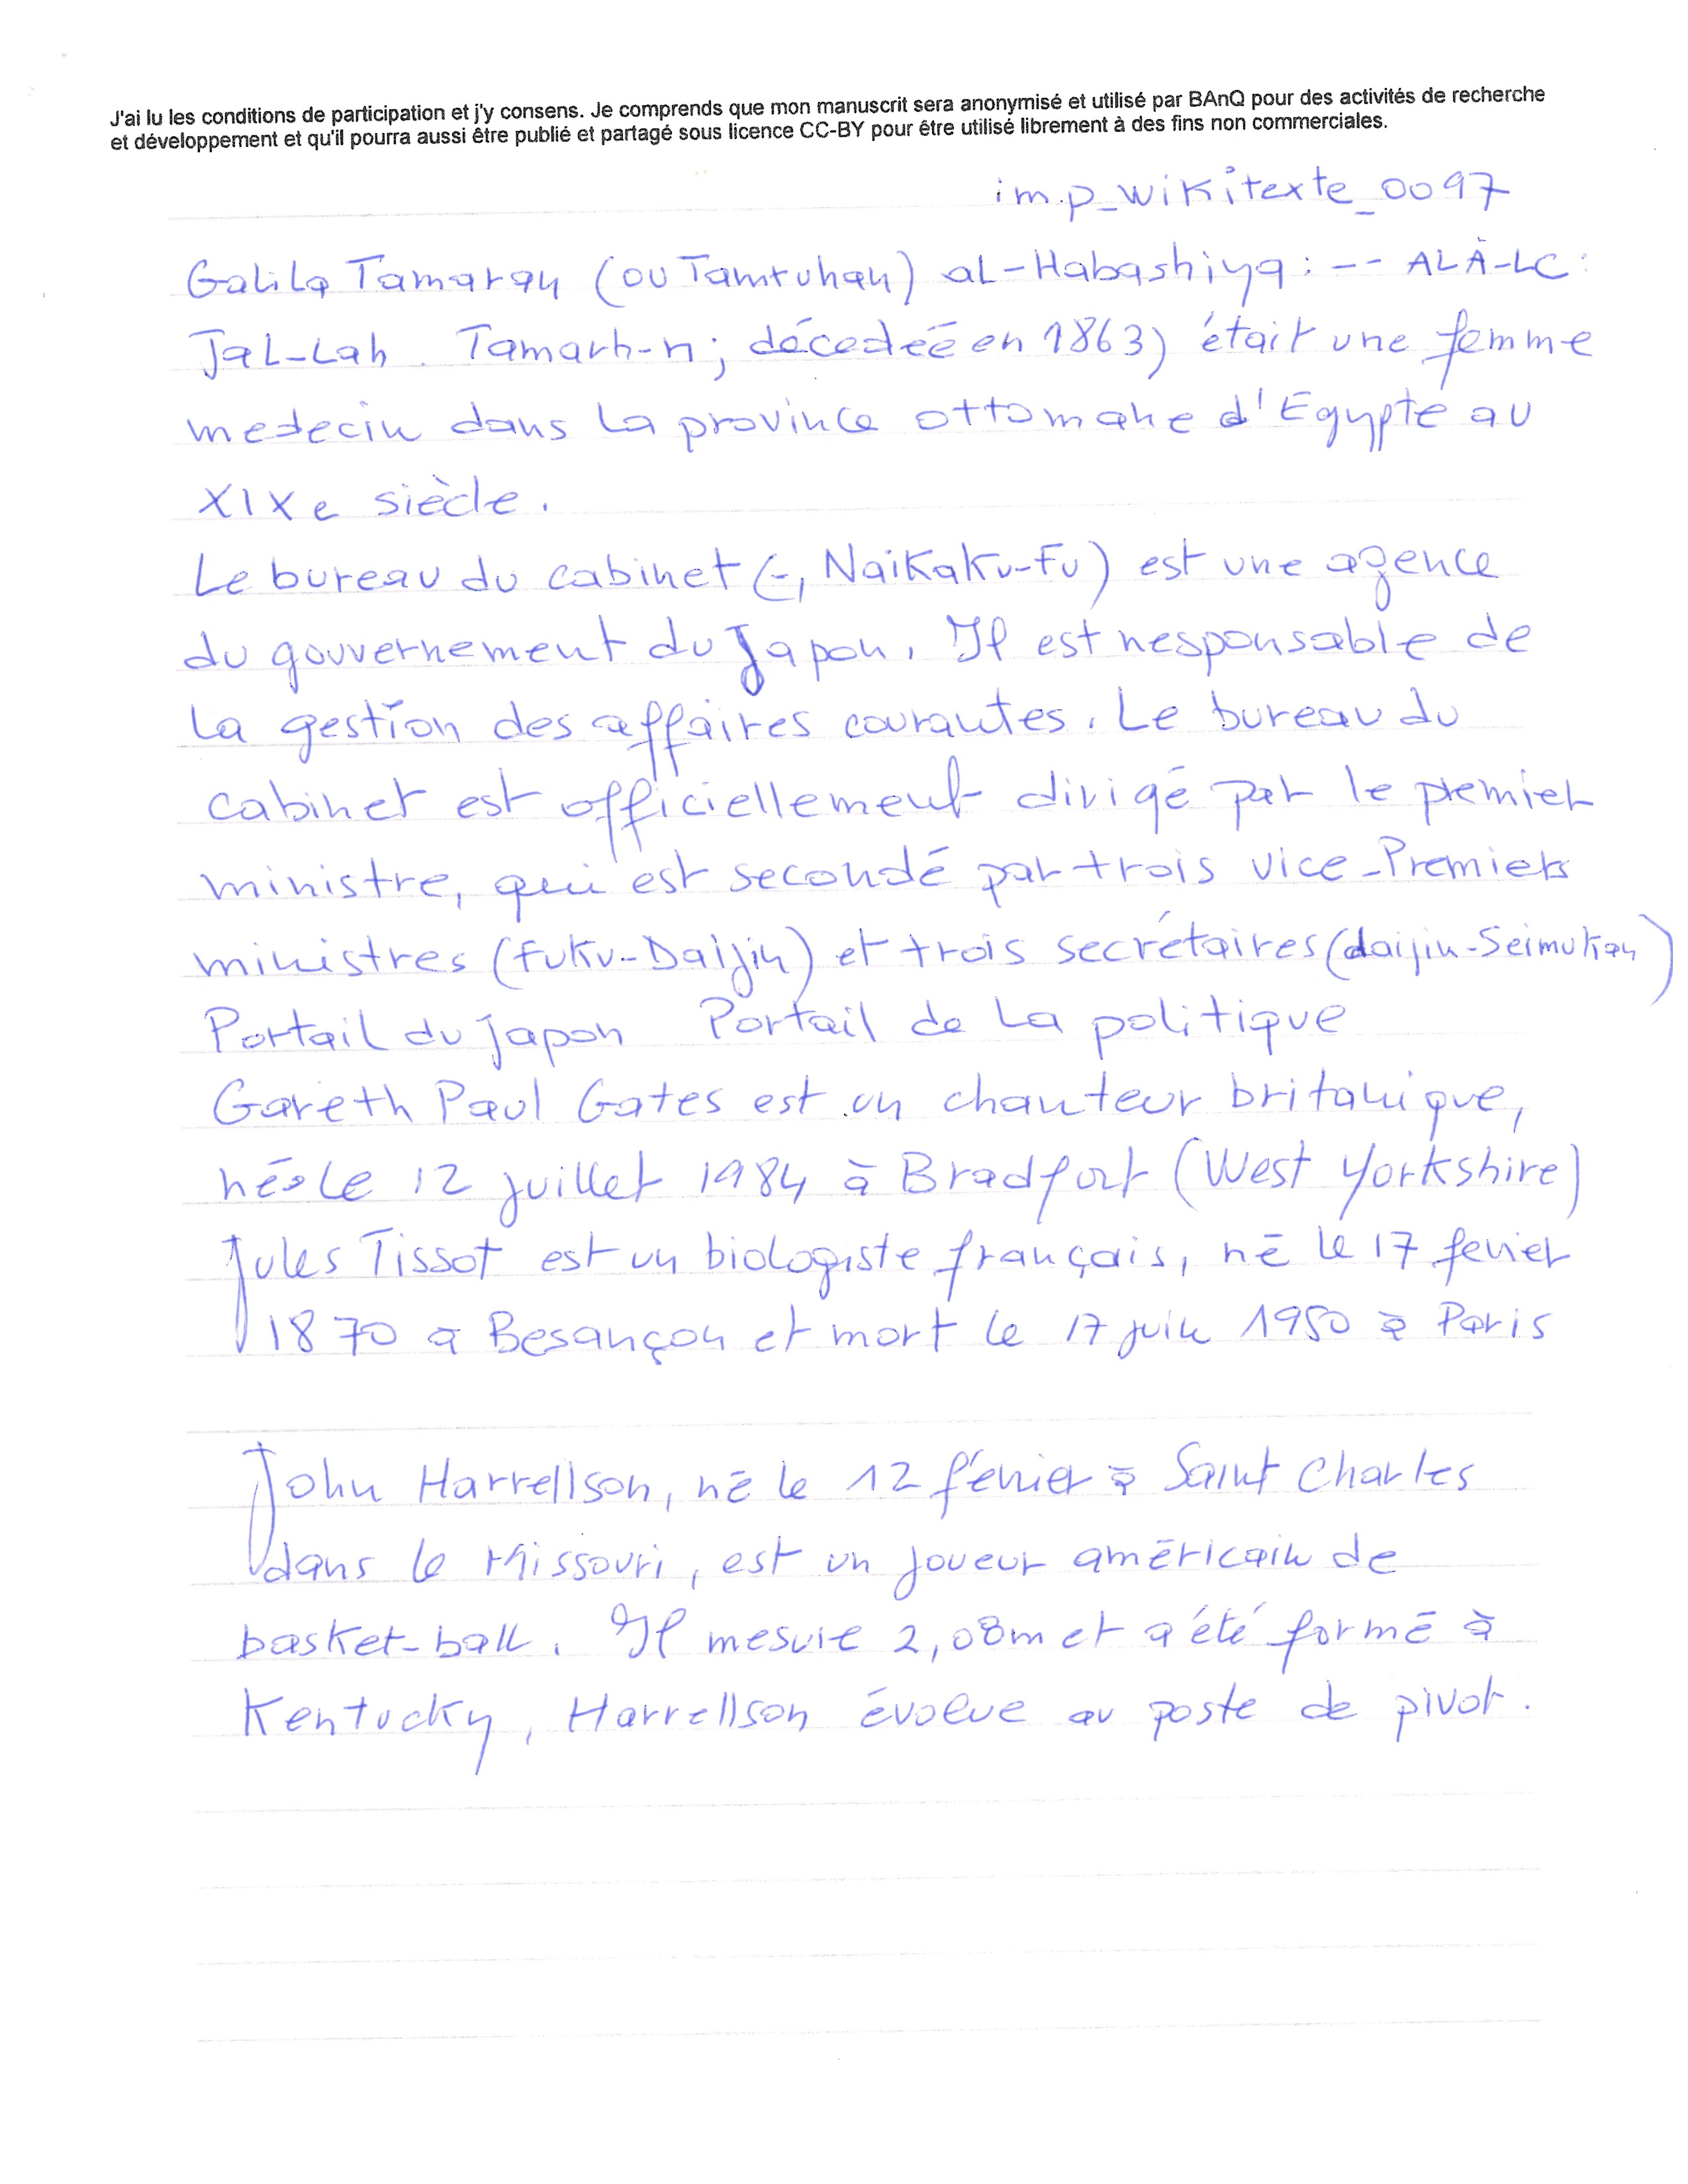 J'ai lu les conditions de participation et j'y consens. Je comprends que mon manuscrit sera anonymisé et utilisé par BAnQ pour des activités de recherche
et développement et qu'il pourra aussi être publié et partagé sous licence CC-BY pour être utilisé librement à des fins non commerciales.
imp_wikitexte_0097
Galila Tamaran (ou Tamruhan) al-Habashiya : -- ALA-LC :
Jal-Lah. Tamarh-n; décedeé en 1863) était une femme
medecin dans la province ottomane d'Egypte au
XIXe siècle.
Le bureau du cabinet (-, Naikaku-Fu) est une agence
du gouvernement du Japon. Il est responsable de
la gestion des affaires courantes. Le bureau du
cabinet est officiellement dirigé par le premier
ministre, qui est secondé par trois vice-Premiers
ministres (Fuku-Daijin) et trois secrétaires (daijin-Seimukan)
Portail du Japon Portail de la politique
Gareth Paul Gates est un chanteur britanique,
né le 12 juillet 1984 à Bradfort (West Yorkshire)
Jules Tissot est un biologiste français, né le 17 fevrier
1870 à Besançon et mort le 17 juin 1950 à Paris
John Harrellson, né le 12 février à Saint Charles
dans le Missouri, est un joueur américain de
basket-ball. Il mesure 2,08m et a été formé à
Kentucky, Harrellson évolue au poste de pivot.